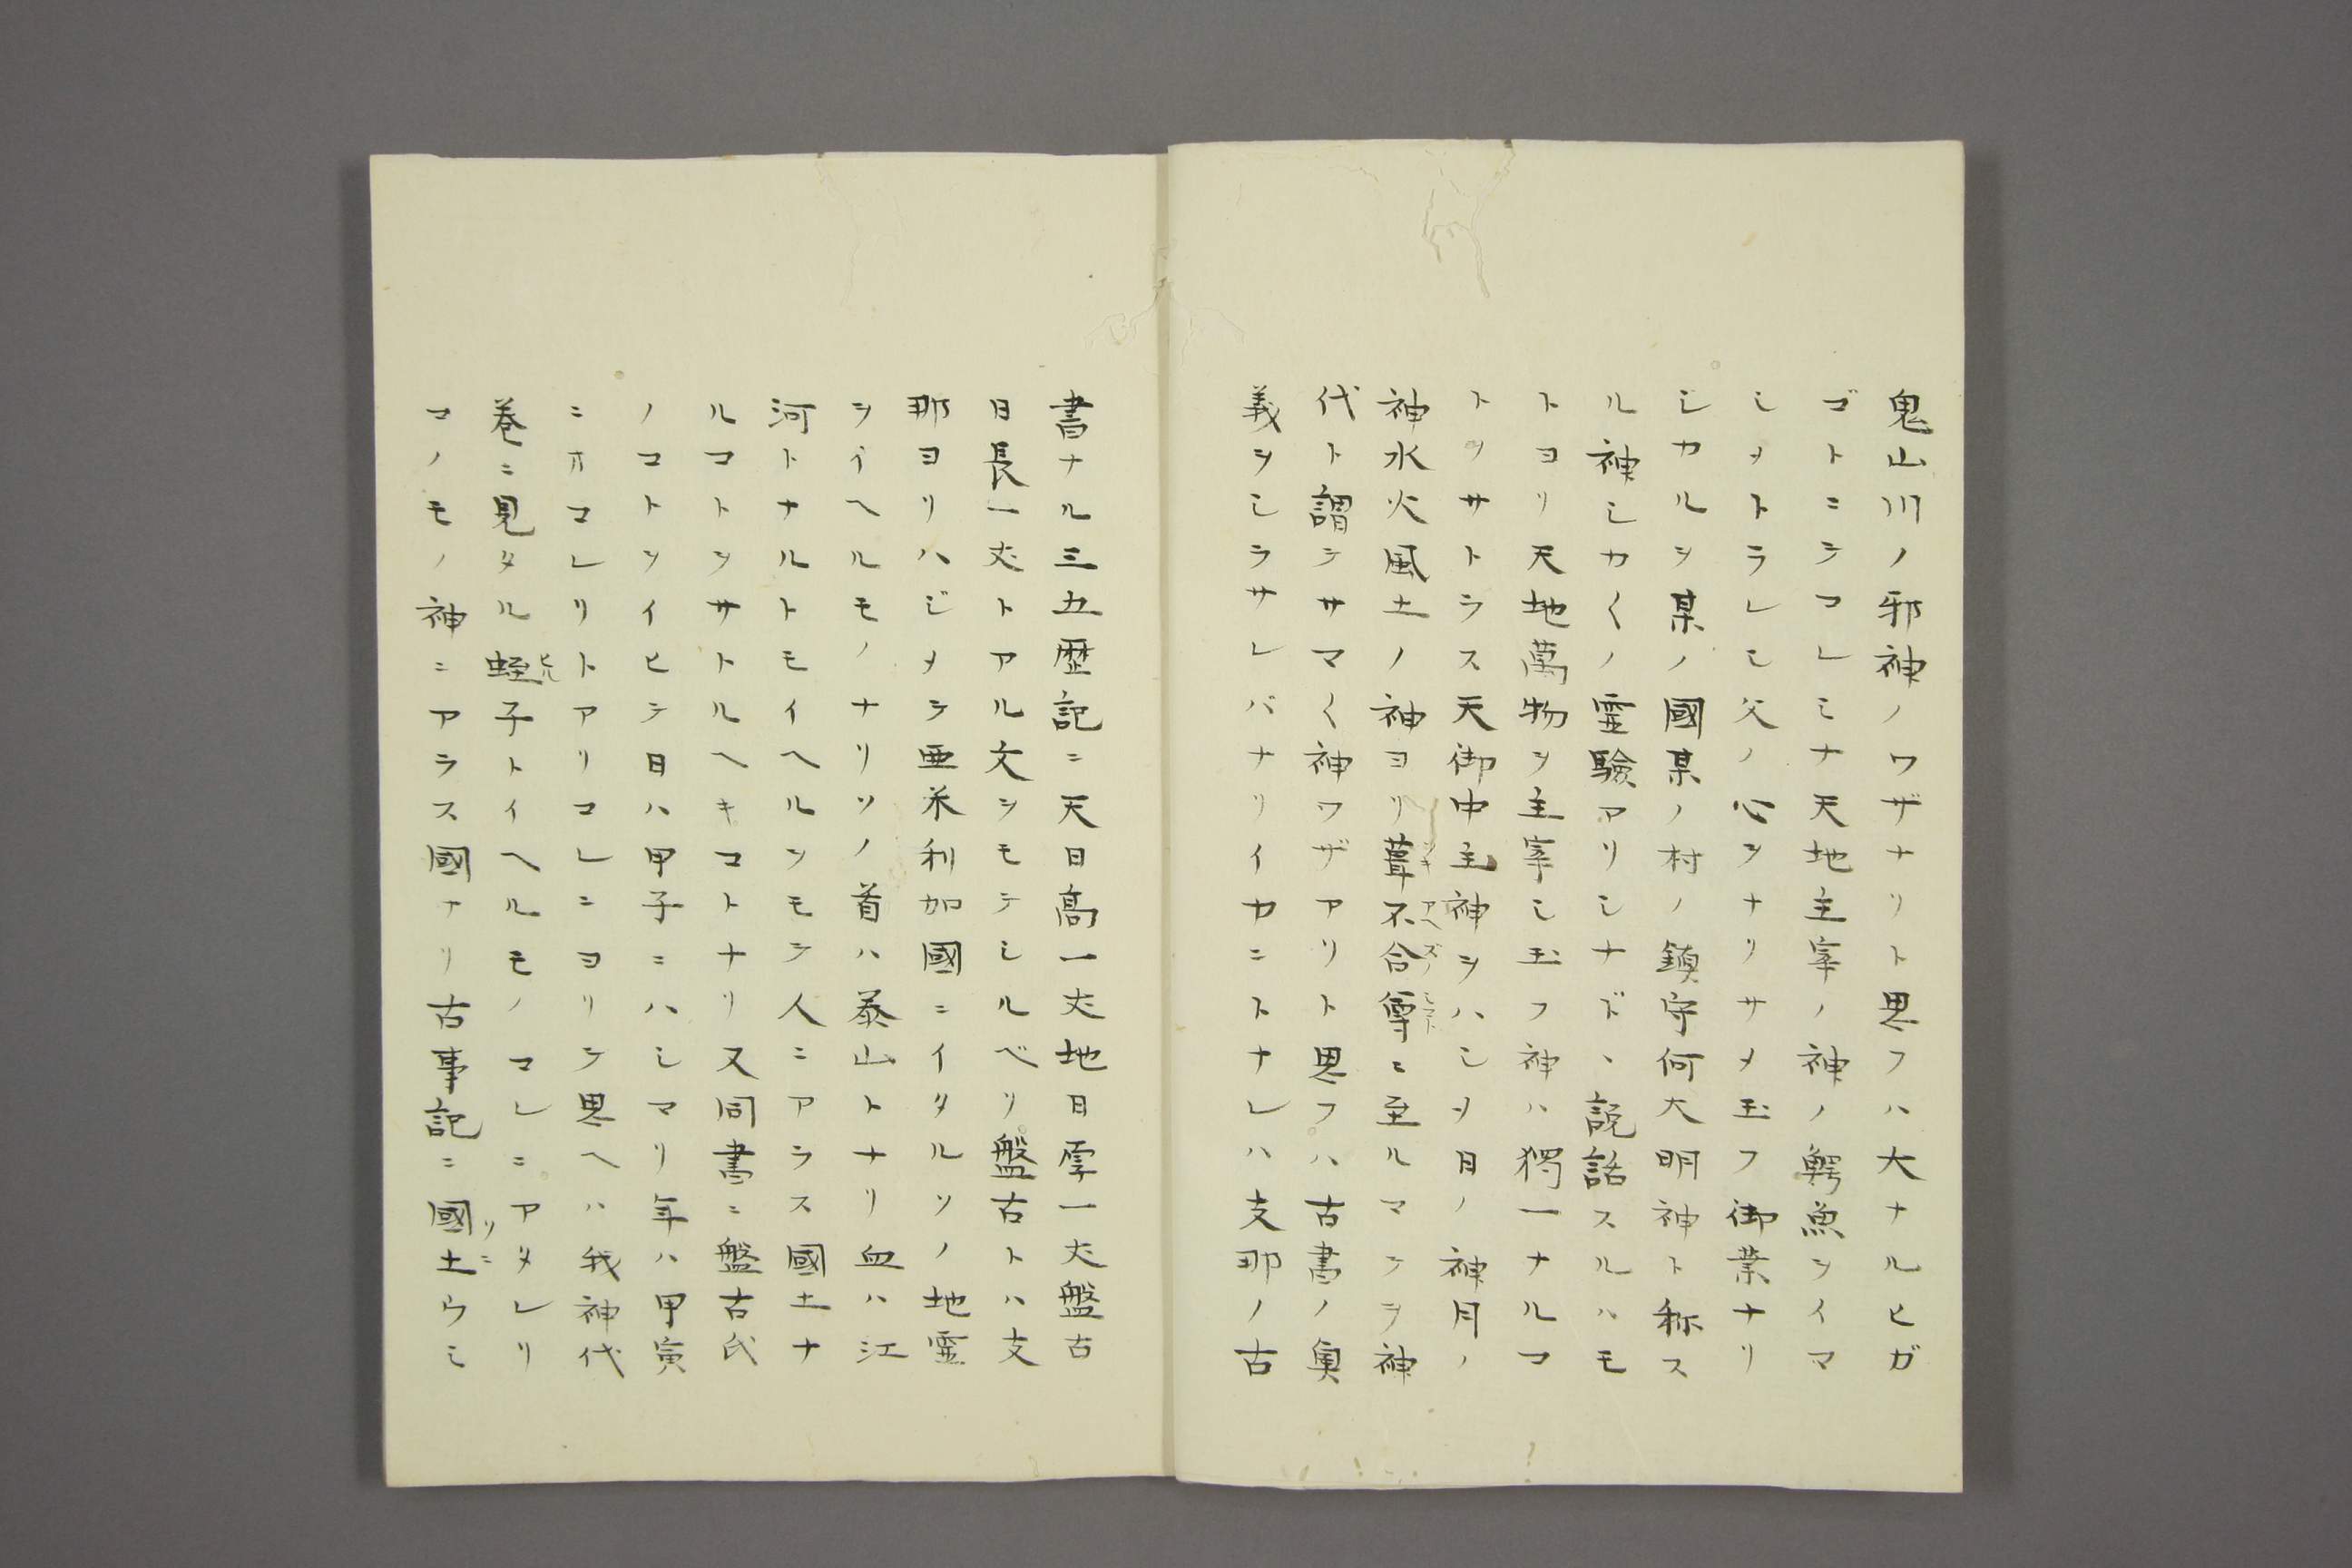 鬼山川ノ邪神ノワザナリト思フハ大ナルヒガ
ゴトニテコレミナ天地主宰ノ神ノ鰐魚ヲイマ
シメトラレシ父ノ心ヲナリサメ玉フ御業ナリ
シカルヲ某ノ國某ノ村ノ鎮守何大明神ト称ス
ル神シカ〱ノ霊驗アリシナド、説話スルハモ
トヨリ天地萬物ヲ主宰シ玉フ神ハ獨一ナルコ
トヲサトラス天御中主神ヲハシメ日ノ神月ノ
神水火風土ノ神ヨリ葺不合尊ニ至ルマテヲ神
代ト謂テサマ〱神ワザアリト思フハ古書ノ奥
義ヲシラサレバナリイカニトナレハ支那ノ古
書ナル三五歴記ニ天日高一丈地日厚一丈盤古
日長一丈トアル文ヲモテシルベリ盤古トハ支
那ヨリハジメテ亜米利加國ニイタルソノ地霊
ヲイヘルモノナリソノ首ハ泰山トナリ血ハ江
河トナルトモイヘルヲモテ人ニアラス國土ナ
ルコトヲサトルヘキコトナリ又同書ニ盤古氏
ノコトヲイヒテ日ハ甲子ニハシマリ年ハ甲寅
ニオコレリトアリコレニヨリテ思ヘハ我神代
巻ニ見タル蛭子トイヘルモノコレニアタレリ
コノモノ神ニアラス國ナリ古事記ニ國土ウミ